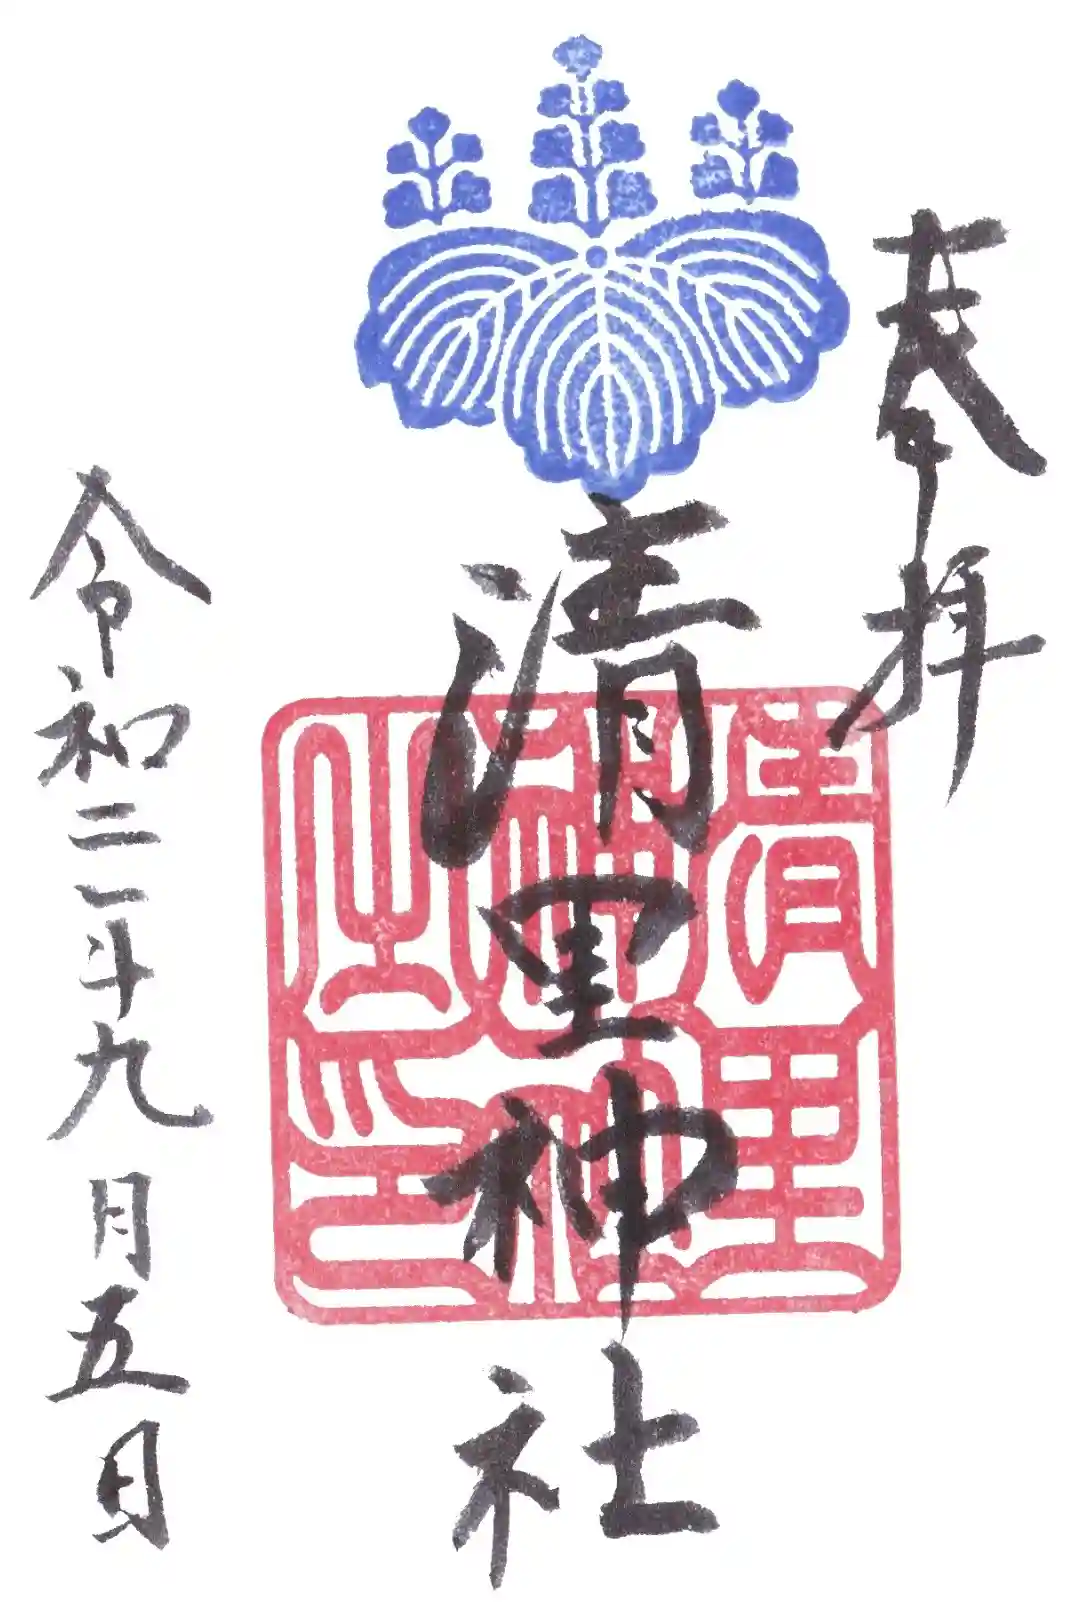 奉拝
清里神社
清里神社之印
令和二年九月五日